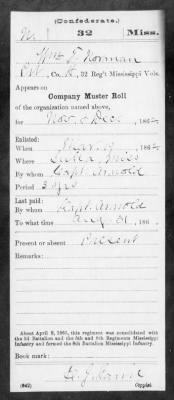 (Confederate.)
N. 32 Miss.
Wm. F. Norman
Pvt, Co. K, 32 Reg't Mississippi Vols.
Appears on
Company Muster Roll
of the organization named above,
for Nov & Dec, 186
Enlisted:
When 186
Where
By whom Capt Arnold
Period 3 yrs
Last paid:
By whom Capt Arnold
To what time Aug 31, 186
Present or absent Present
Remarks:
About April 9, 1865, this regiment was consolidated with
the 3d Battalion and the 5th and 8th Regiments Mississippi
Infantry and formed the 8th Battalion Mississippi Infantry.
Book mark:
(642) Copyist.